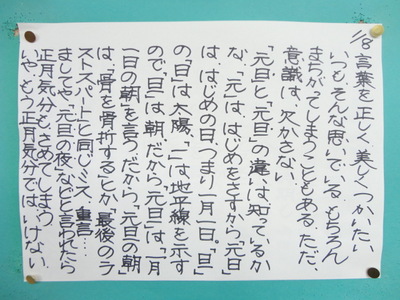 1/8 言葉を正しく、美しくつかいたい
いつも、そんな思いでいる。もちろん
まちがってしまうこともある。ただ、
意識は、欠かさない
「元旦」と「元日」の違いは、知っているか
な、「元」は、はじめをさすから、「元日」
は、はじめの日、つまり一月一日。「旦」
の「日」は太陽、「一」は地平線を示す
ので、「旦」は、朝だから、「元旦」は、「一月
一日の朝」を言う。だから、「元旦の朝」
は、「骨を骨折する」とか、「最後のラ
ストスパート」と同じミス、重言…
ましてや、「元旦の夜」などと言われたら
正月気分も、さめてしまう
いや、もう正月気分では、いけない